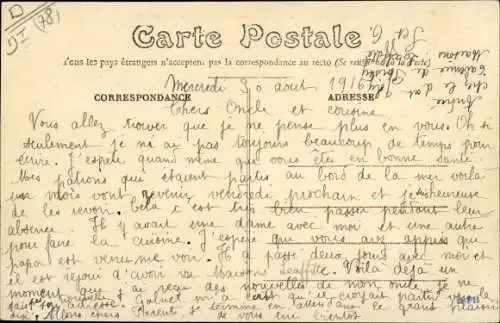 D
DI (78)
Carte Postale
Tous les pays étrangers n'acceptent pas la correspondance au recto (Se renseigner à la Poste)
Mercredi 30 aout 1916
CORRESPONDANCE ADRESSE
Chers Oncle et cousine
Vous allez trouver que je ne pense plus en vous. Oh si
seulement je ne ai pas toujours beaucoup de temps pour
écrire. J'espère quand même que vous êtes en bonne santé
Mes patrons qui étaient partis au bord de la mer voila
un mois vont revenir vendredi prochain et je suis heureuse
de les revoir. Cela c'est très bien passer pendant leur
absence. Il y avait une dame avec moi et une autre
pour faire la cuisine. J'espère que vous avez appris que
papa est venu me voir. Il a passé deux jours avec moi et
il est rejoui d'avoir vu Maisons Laffitte. Voilà déjà un
moment que j'ai reçu des nouvelles de mon oncle je ne
sais pas son adresse. Gabriel m'a écrit qu'il croyait partir
Allons chers Parents je termine en attendant le grand plaisir
de vous lire bientot